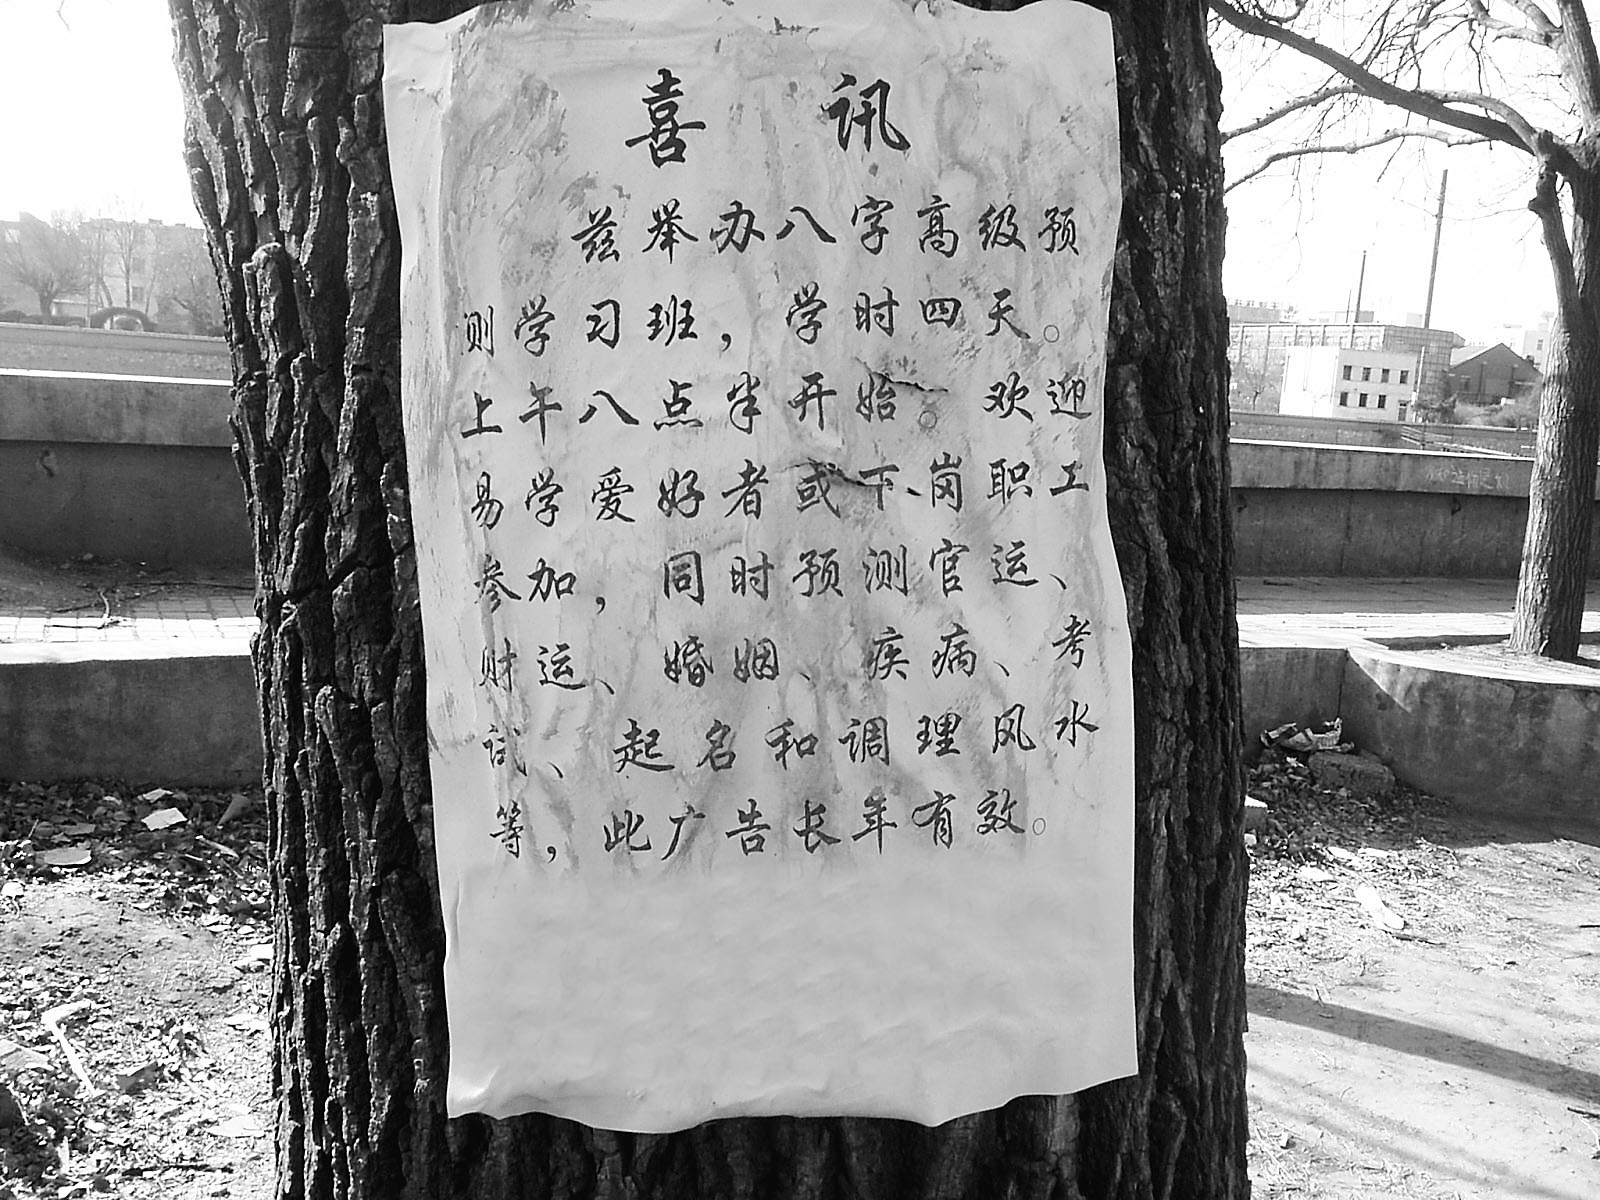 喜讯
兹举办八字高级预
则学习班，学时四天。
上午八点半开始。欢迎
易学爱好者或下岗职工
参加，同时预测官运、
财运、婚姻、疾病、考
试、起名和调理风水
等，此广告长年有效。